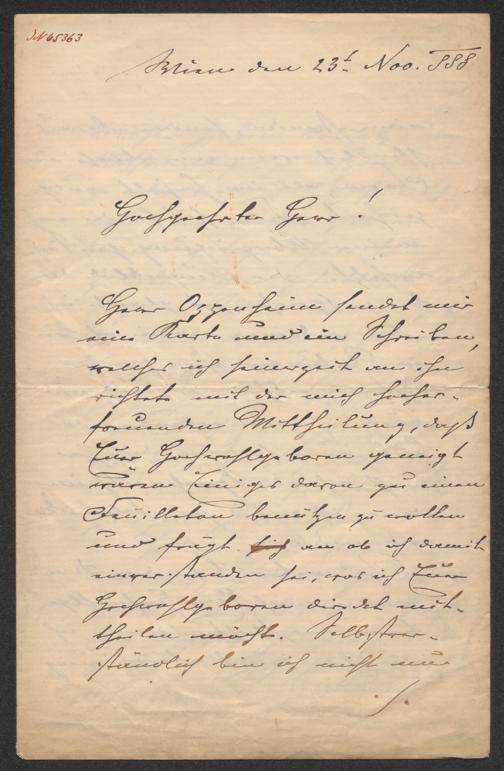 JN 65363
Wien den 23t. Nov. 888
Hochgeehrter Herr!
Herr Oppenheim sendet mir
eine Karte und ein Schreiben,
welches ich seinerzeit an ihn
richtete mit der mich hocher-
freuenden Mittheilung, daß
Euer Hochwohlgeboren geneigt
wären Einiges davon zu einem
Feuilleton benützen zu wollen
und frägt an ob ich damit
einverstanden sei, was ich Euer
Hochwohlgeboren direct mit-
theilen möchte. Selbstver-
ständlich bin ich nicht nur
./.